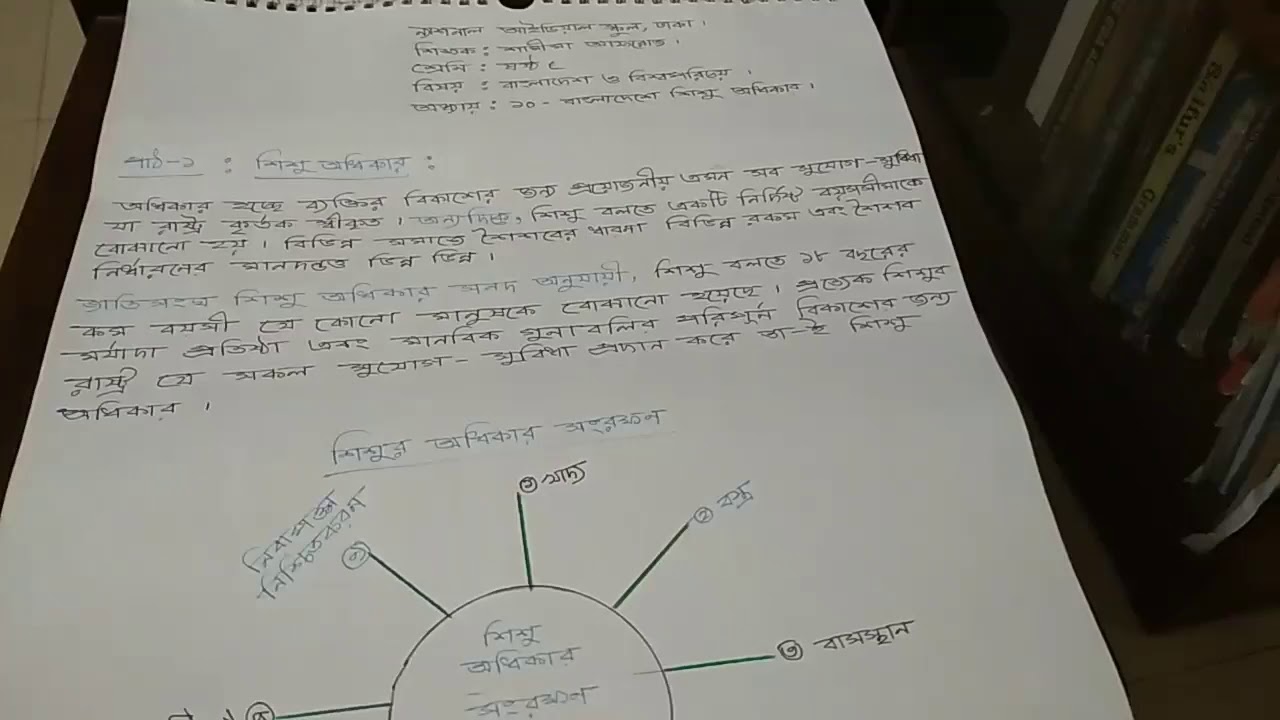 ন্যাশনাল আইডিয়াল স্কুল, ঢাকা।
শিক্ষক :
শ্রেণি : ষষ্ঠ
বিষয় : বাংলাদেশ ও বিশ্বপরিচয়।
অধ্যায় : ১০ - বাংলাদেশে শিশু অধিকার।
পাঠ-১ : শিশু অধিকার :
অধিকার হচ্ছে ব্যক্তির বিকাশের জন্য প্রয়োজনীয় এমন সব সুযোগ-সুবিধা
যা রাষ্ট্র কর্তৃক স্বীকৃত। অন্যদিকে, শিশু বলতে একটি নির্দিষ্ট বয়সসীমাকে
বোকানো হয়। বিভিন্ন সমাজে শৈশবের ধারনা বিভিন্ন রকম এবং শৈশব
নির্ধারনের মানদন্ডও ভিন্ন ভিন্ন।
জাতিসংঘ শিশু অধিকার সনদ অনুযায়ী, শিশু বলতে ১৮ বছরের
কম বয়সী যে কোনো মানুষকে বোকানো হয়েছে। প্রত্যেক শিশুর
মর্যাদা প্রতিষ্ঠা এবং মানবিক গুনাবলির পরিপূর্ন বিকাশের জন্য
রাষ্ট্র যে সকল সুযোগ-সুবিধা প্রদান করে তা-ই শিশু
অধিকার।
শিশুর অধিকার সংরক্ষন
① খাদ্য
② বস্ত্র
নিরাপত্তা
নিশ্চিতকরন
③ বাসস্থান
শিশু
অধিকার
সংরক্ষন
Grammar